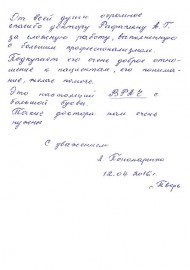 От всей души огромное
спасибо доктору А.Г.
за сложную работу, выполненную
с большим профессионализмом.
Подкупает его очень доброе отно-
шение к пациентам, его понима-
ние, желание помочь.
Это настоящий ВРАЧ с
большой буквы.
Такие доктора нам очень
нужны.
С уважением
Л. Пономаренко
12.04.2016 г.
г. Тверь